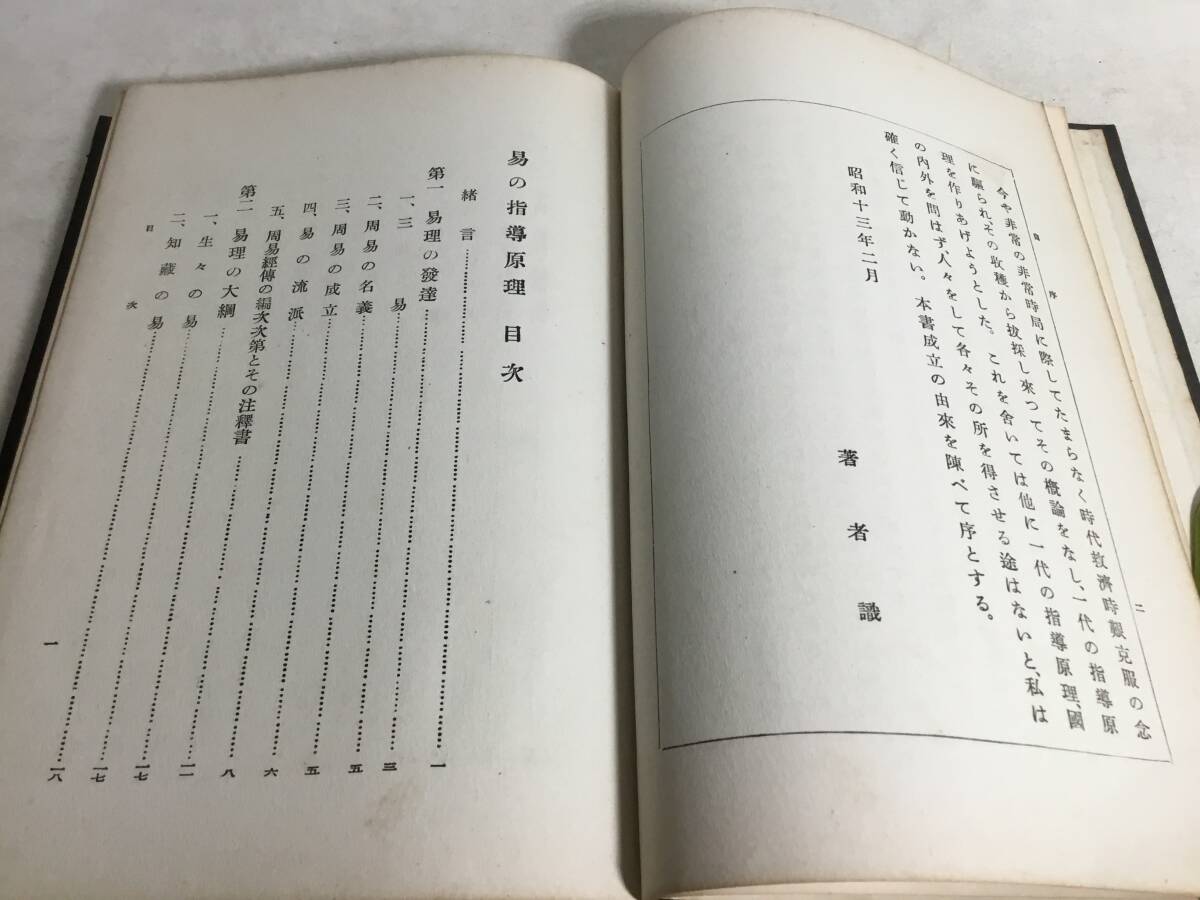 自序
二
今や非常の非常時局に際してたまらなく時代救濟時艱克服の念
に驅られ、その收穫から拔採し來つてその概論をなし、一代の指導原
理を作りあげようとした。これを舍いては他に一代の指導原理、國
の內外を問はず人々をして各々その所を得させる途はないと、私は
確く信じて動かない。本書成立の由來を陳べて序とする。
昭和十三年二月
著者識
易の指導原理 目次
緒言……一
第一 易理の發達……三
一、三易……五
二、周易の名義……五
三、周易の成立……六
四、易の流派……八
五、周易經傳の編次次第とその注釋書……一二
第二 易理の大綱……一七
一、生々の易……一七
二、知藏の易……一八
目次
一